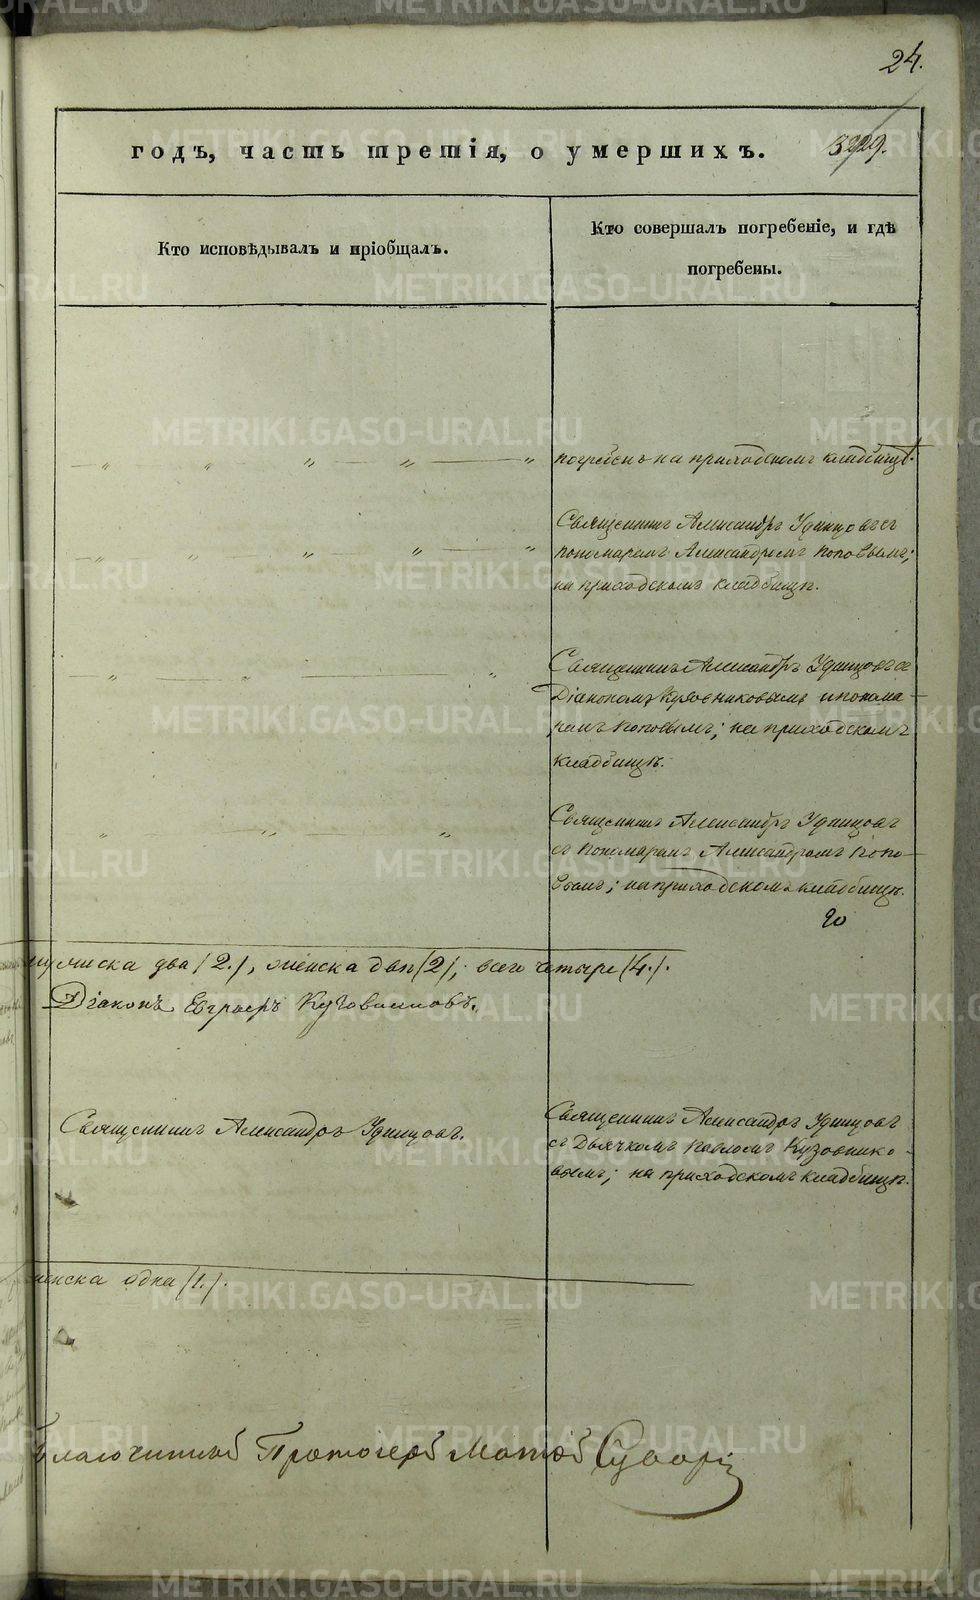 24.
годъ, часть третія, о умершихъ.
29.
Кто исповѣдывалъ и пріобщалъ.
Кто совершалъ погребеніе, и гдѣ
погребены.
погребенъ на приходскомъ кладбищѣ.
Священникъ Александръ Удинцовъ съ
пономаремъ Александромъ Поповымъ;
на приходскомъ кладбищѣ.
Священникъ Александръ Удинцовъ съ
Діакономъ Кузовниковымъ и понома-
ремъ Поповымъ; на приходскомъ
кладбищѣ.
Священникъ Александръ Удинцовъ
съ пономаремъ Александромъ Попо-
вымъ; на приходскомъ кладбищѣ.
мужеска два (2.), женска двѣ (2); всего четыре (4.).
Діаконъ Евграфъ Кузовниковъ.
Священникъ Александръ Удинцовъ.
Священникъ Александръ Удинцовъ
съ Дьячкомъ Павломъ Кузовнико-
вымъ; на приходскомъ кладбищѣ.
женска одна (1.).
Благочинной Протоіерей
METRIKI.GASO-URAL.RU